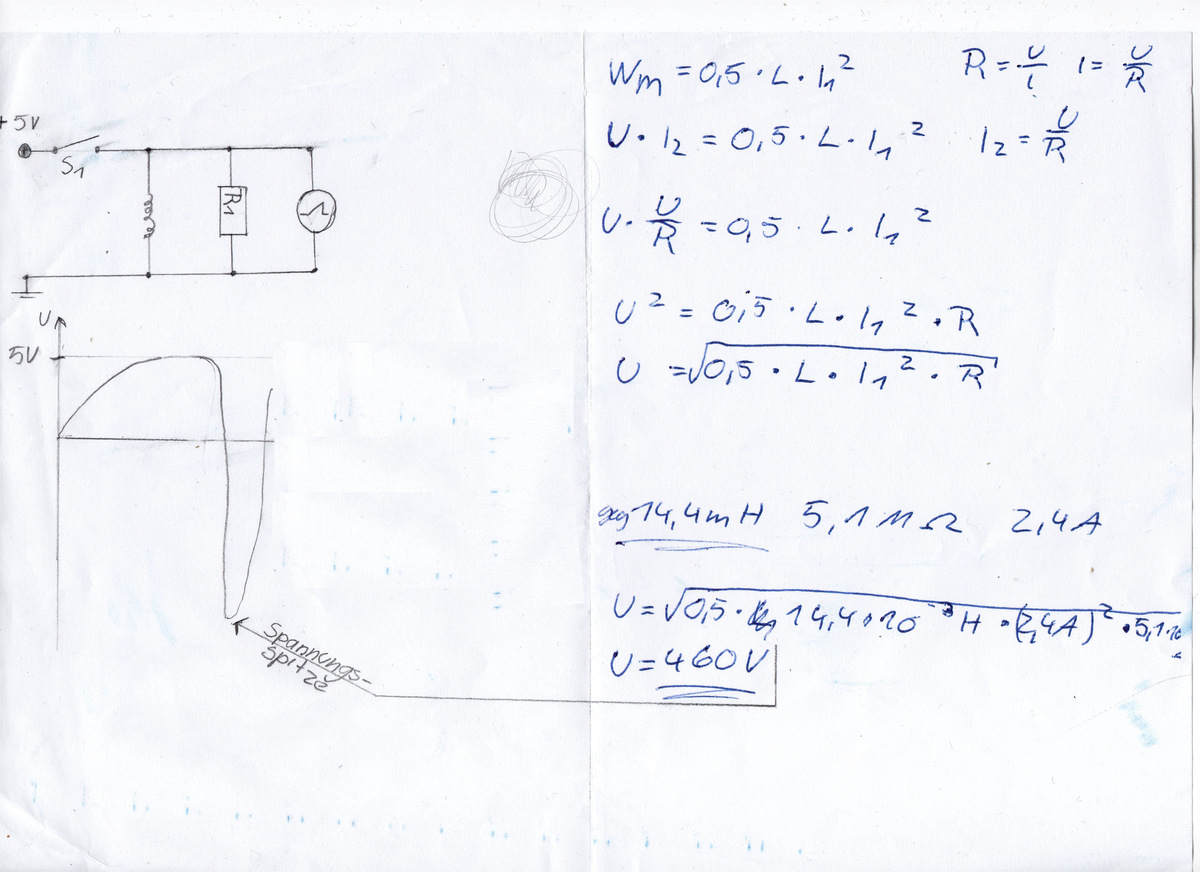 +5V
S1
R1
U
5V
Spannungs-
spitze
Wm = 0,5 · L · I₁²   R = U/I   I = U/R
U · I₂ = 0,5 · L · I₁²   I₂ = U/R
U · U/R = 0,5 · L · I₁²
U² = 0,5 · L · I₁² · R
U = √0,5 · L · I₁² · R
14,4mH 5,1MΩ 2,4A
U = √0,5 · 14,4·10⁻³H · (2,4A)² · 5,1·10
U = 460V